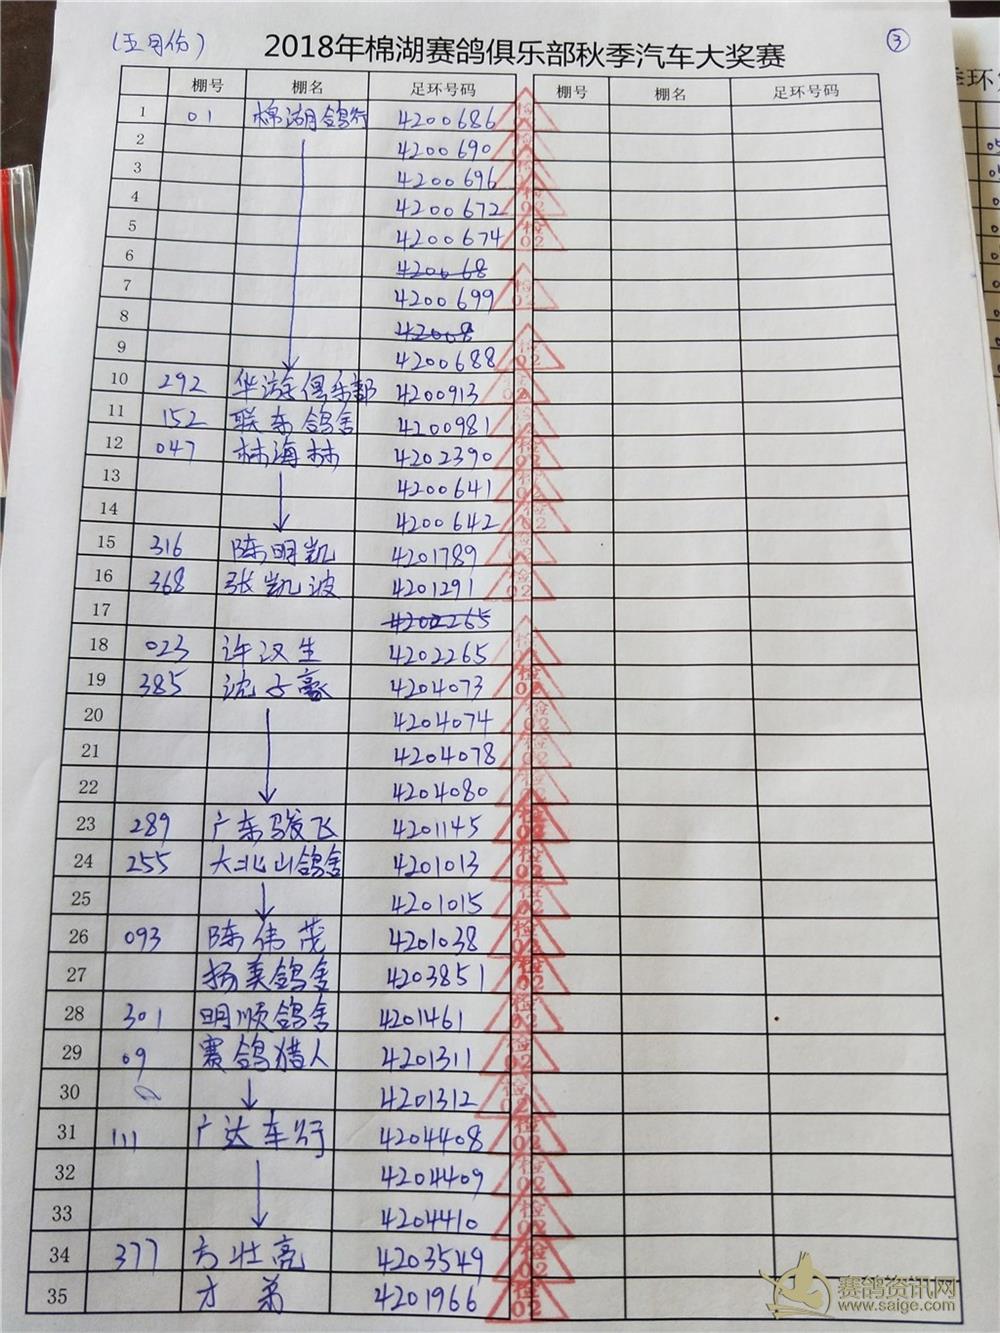 (五月份)
2018年棉湖赛鸽俱乐部秋季汽车大奖赛
③
棚号 棚名 足环号码 棚号 棚名 足环号码
1 01 棉湖鸽行 4200686
2 4200690
3 4200696
4 4200672
5 4200674
6 420068
7 4200699
8 42068
9 4200688
10 292 华游俱乐部 4200913
11 152 联东鸽舍 4200981
12 047 林海林 4202390
13 4200641
14 4200642
15 316 陈明凯 4201789
16 368 张凯波 4201291
17 4202265
18 023 许汉生 4202265
19 385 沈子豪 4204073
20 4204074
21 4204078
22 4204080
23 289 广东骏飞 4201145
24 255 大北山鸽舍 4201013
25 4201015
26 093 陈伟茂 4201038
27 扬美鸽舍 4203851
28 301 明顺鸽舍 4201461
29 09 赛鸽猎人 4201311
30 4201312
31 111 广达车行 4204408
32 4204409
33 4204410
34 377 方壮亮 4203549
35 才弟 4201966
检 02
季环
赛鸽资讯网
www.saige.com